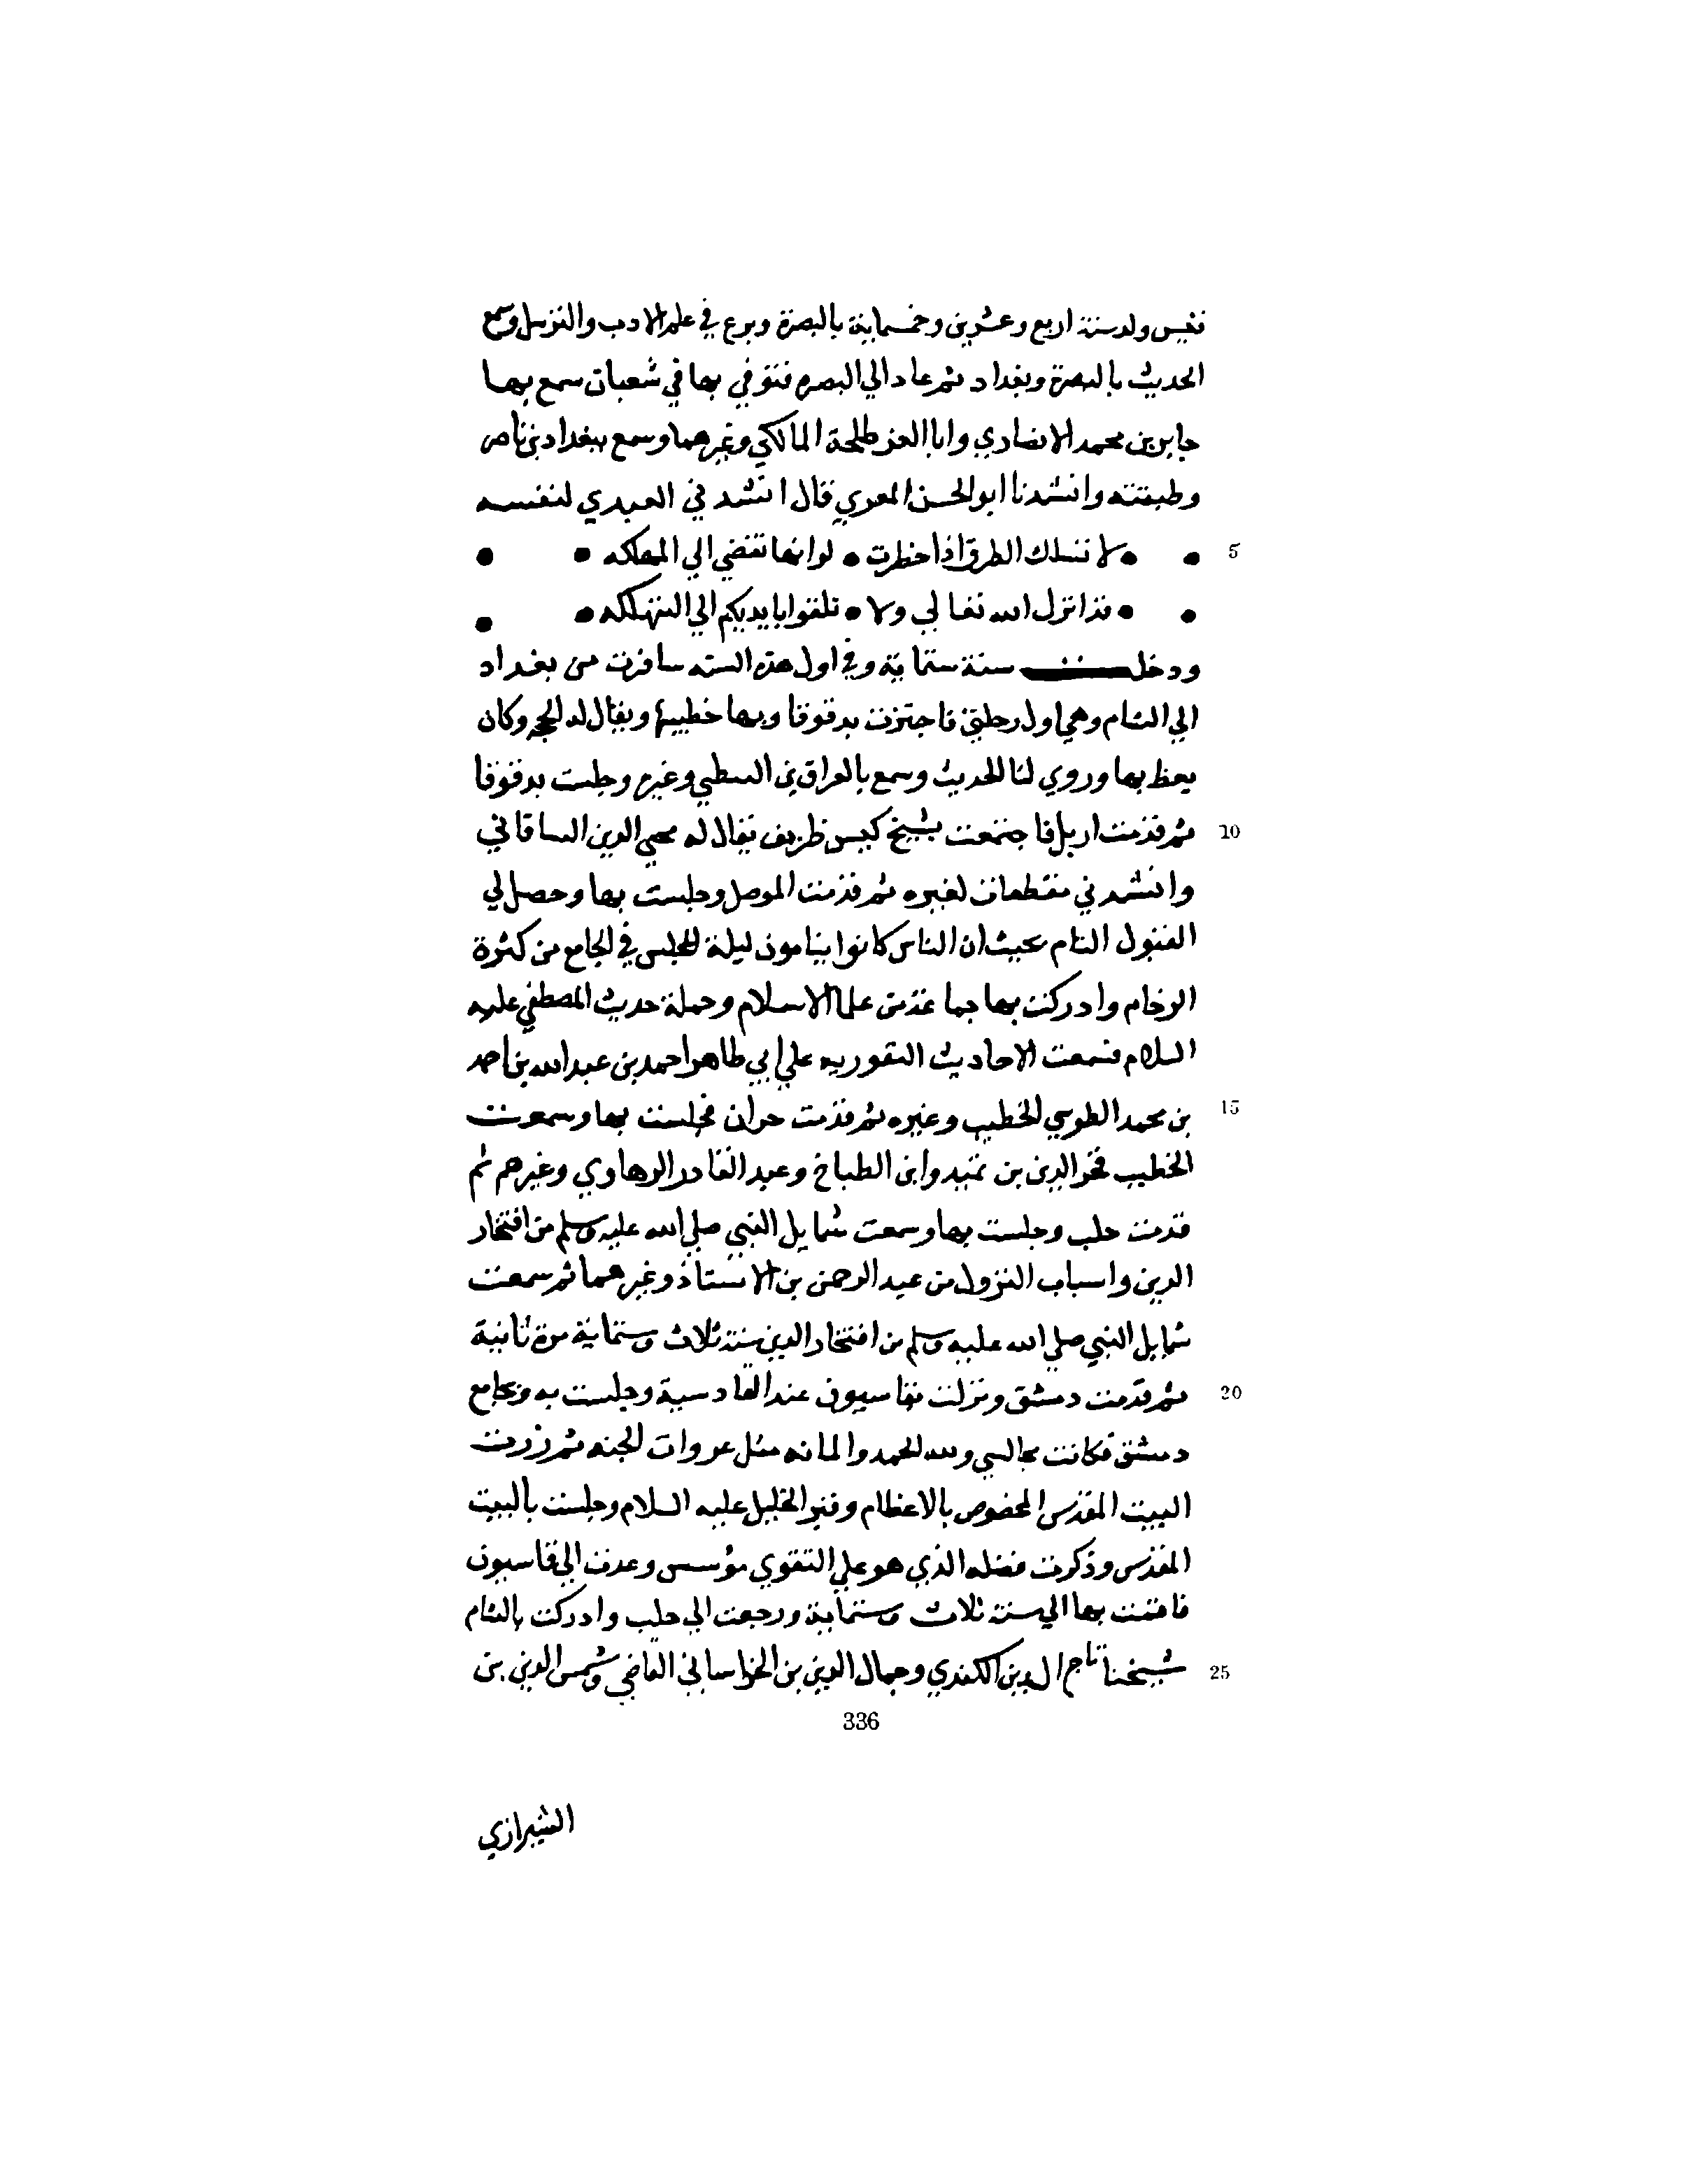 نفيس ولد سنة اربع وعشرين وخمسماية بالبصرة وبرع في علم الادب والترسل وسمع
الحديث بالبصرة وبغداد ثم عاد الي البصره فتوفي بها في شعبان سمع بها
جابر بن محمد الانصاري وابا العز طلحة المالكي وغيرهما وسمع ببغداد بن ناصر
وطبقته وانشدنا ابو الحسن المعري قال انشد ني العبدي لنفسه
5 • • لا تسلك الطرق اذا خطرت • لوانها تفضي الي المهلكه • •
• • قد انزل الله تعالي ولا • تلقوا بايديكم الي التهلكه • •
ودخلت سنة ستماية وفي اول هذه السنه سافرت من بغداد
الي الشام وهي اول رحلتي فاجتزت بدقوقا وبها خطيبها ويقال له الحجه وكان
يعظ بها وروي لنا الحديث وسمع بالعراق بن البطي وغيره وجلست بدقوقا
10 ثم قدمت اربل فاجتمعت بشيخ كيس ظريف يقال له محيي الدين الساقاني
وانشد ني مقطعات لغيره ثم قدمت الموصل وجلست بها وحصل لي
القبول التام بحيث ان الناس كانوا ينامون ليلة المجلس في الجامع من كثرة
الزحام وادركت بها جماعة من علما الاسلام وحملة حديث المصطفي عليه
السلام فسمعت الاحاديث النقوريه علي ابي طاهر احمد بن عبد الله بن احمد
15 بن محمد الطوسي الخطيب وغيره ثم قدمت حران فجلست بها وسمعت
الخطيب فخر الدين بن تميه وابن الطباخ وعبد القادر الرهاوي وغيرهم ثم
قدمت حلب وجلست بها وسمعت شمايل النبي صلي الله عليه وسلم من افتخار
الدين واسباب النزول من عبد الرحمن بن الاستاذ وغيرهما ثم سمعت
شمايل النبي صلي الله عليه وسلم من افتخار الدين سنة ثلاث وستماية مرة ثانية
20 ثم قدمت دمشق ونزلت بقاسيون عند القادسية وجلست به وبجامع
دمشق فكانت مجالسي ولله الحمد والمانه مثل عروات الجنه ثم زرت
البيت المقدس المخصوص بالاعظام وقبر الخليل عليه السلام وجلست بالبيت
المقدس وذكرت فضله الذي هو علي التقوي مؤسس وعدت الي قاسيون
فاقمت بها الي سنة ثلاث وستماية ورجعت الي حلب وادركت بالشام
25 شيخنا تاج الدين الكندي وجمال الدين بن الحراستاني القاضي وشمس الدين بن
336
الشيرازي